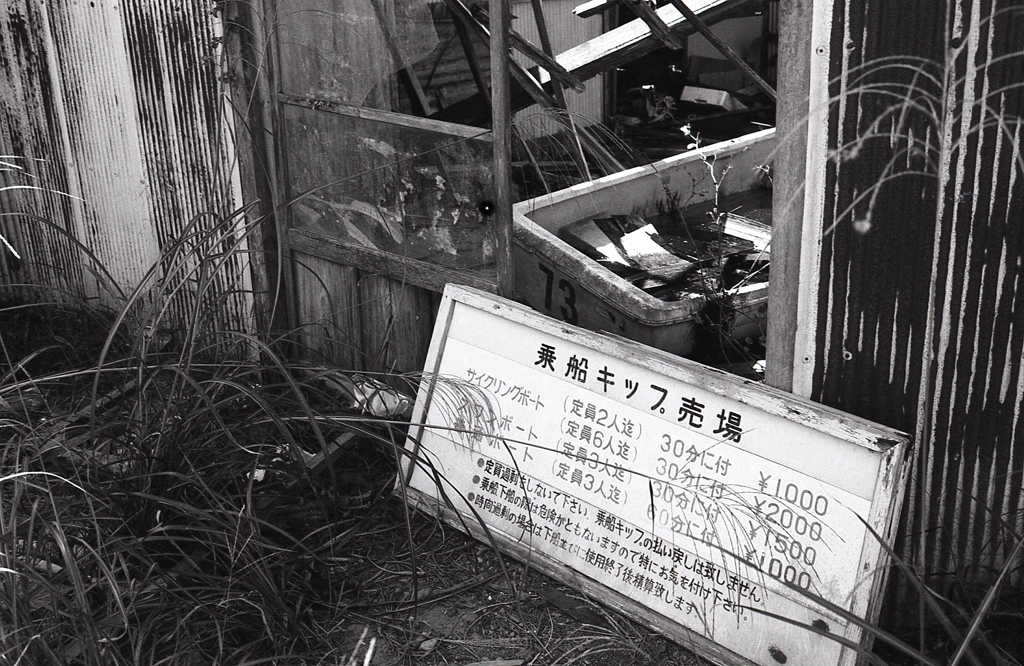 73
乗船キップ売場
サイクリングボート (定員2人迄) 30分に付 ¥1000
ボート (定員6人迄) 30分に付 ¥2000
ボート (定員3人迄) 30分に付 ¥1500
ボート (定員3人迄) 60分に付 ¥1000
●定員過剰をしないで下さい。乗船キップの払い戻しは致しません。
●乗船下船の際は危険がともないますので特にお気を付け下さい。
●時間過剰の場合は下船までに使用終了後精算致します